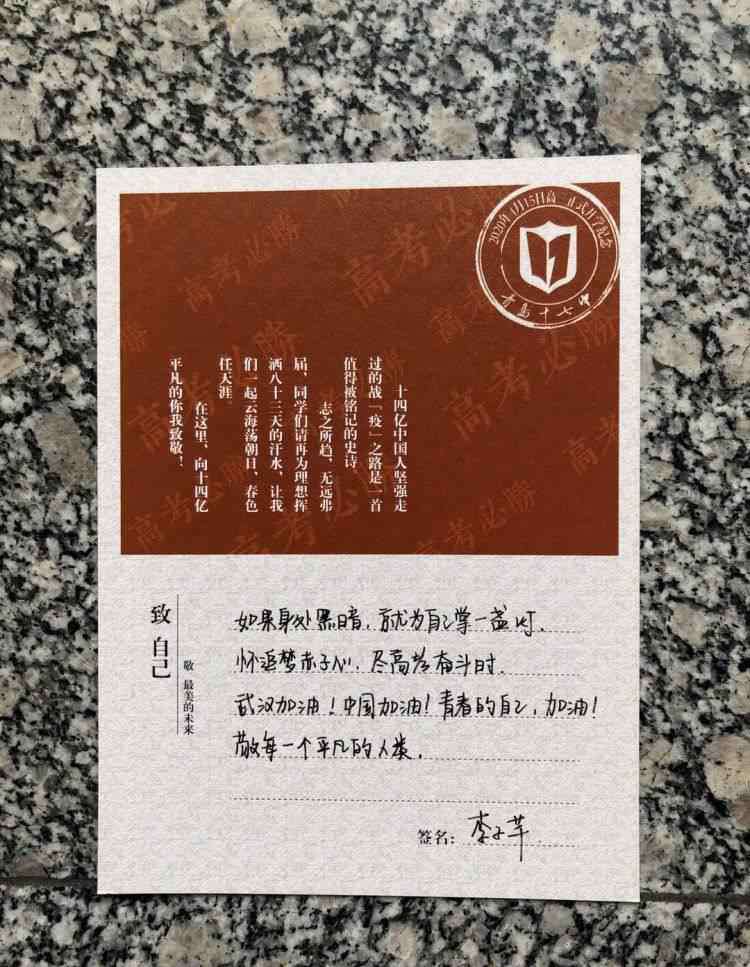 2020年4月15日高三正式开学纪念
青岛十七中
高考必勝
高考必勝
高考必勝
高考必勝
高考必勝
高考必勝
十四亿中国人坚强走
过的战「疫」之路是一首
值得被铭记的史诗
志之所趋，无远弗
届，同学们请再为理想挥
洒八十三天的汗水，让我
们一起云海荡朝日，春色
任天涯。
在这里，向十四亿
平凡的你我致敬！
致 自己
敬 最美的未来
如果身处黑暗，就为自己掌一盏灯.
怀追梦赤子心，尽高考奋斗时.
武汉加油！中国加油！青春的自己，加油！
敬每一个平凡的人类.
签名：李子芊